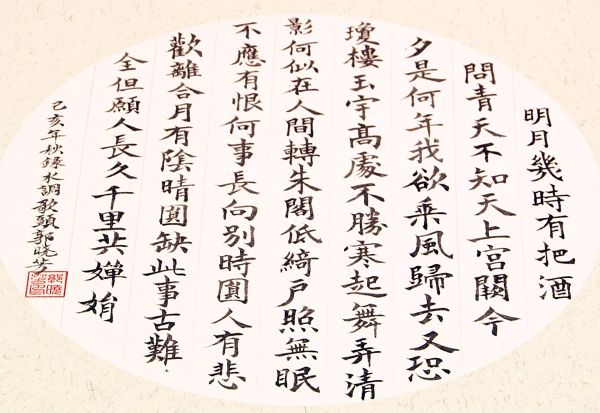 明月幾時有把酒
問青天不知天上宮闕今
夕是何年我欲乘風歸去又恐
瓊樓玉宇高處不勝寒起舞弄清
影何似在人間轉朱閣低綺戶照無眠
不應有恨何事長向別時圓人有悲
歡離合月有陰晴圓缺此事古難
全但願人長久千里共嬋娟
己亥年秋錄水調歌頭郭曉芳